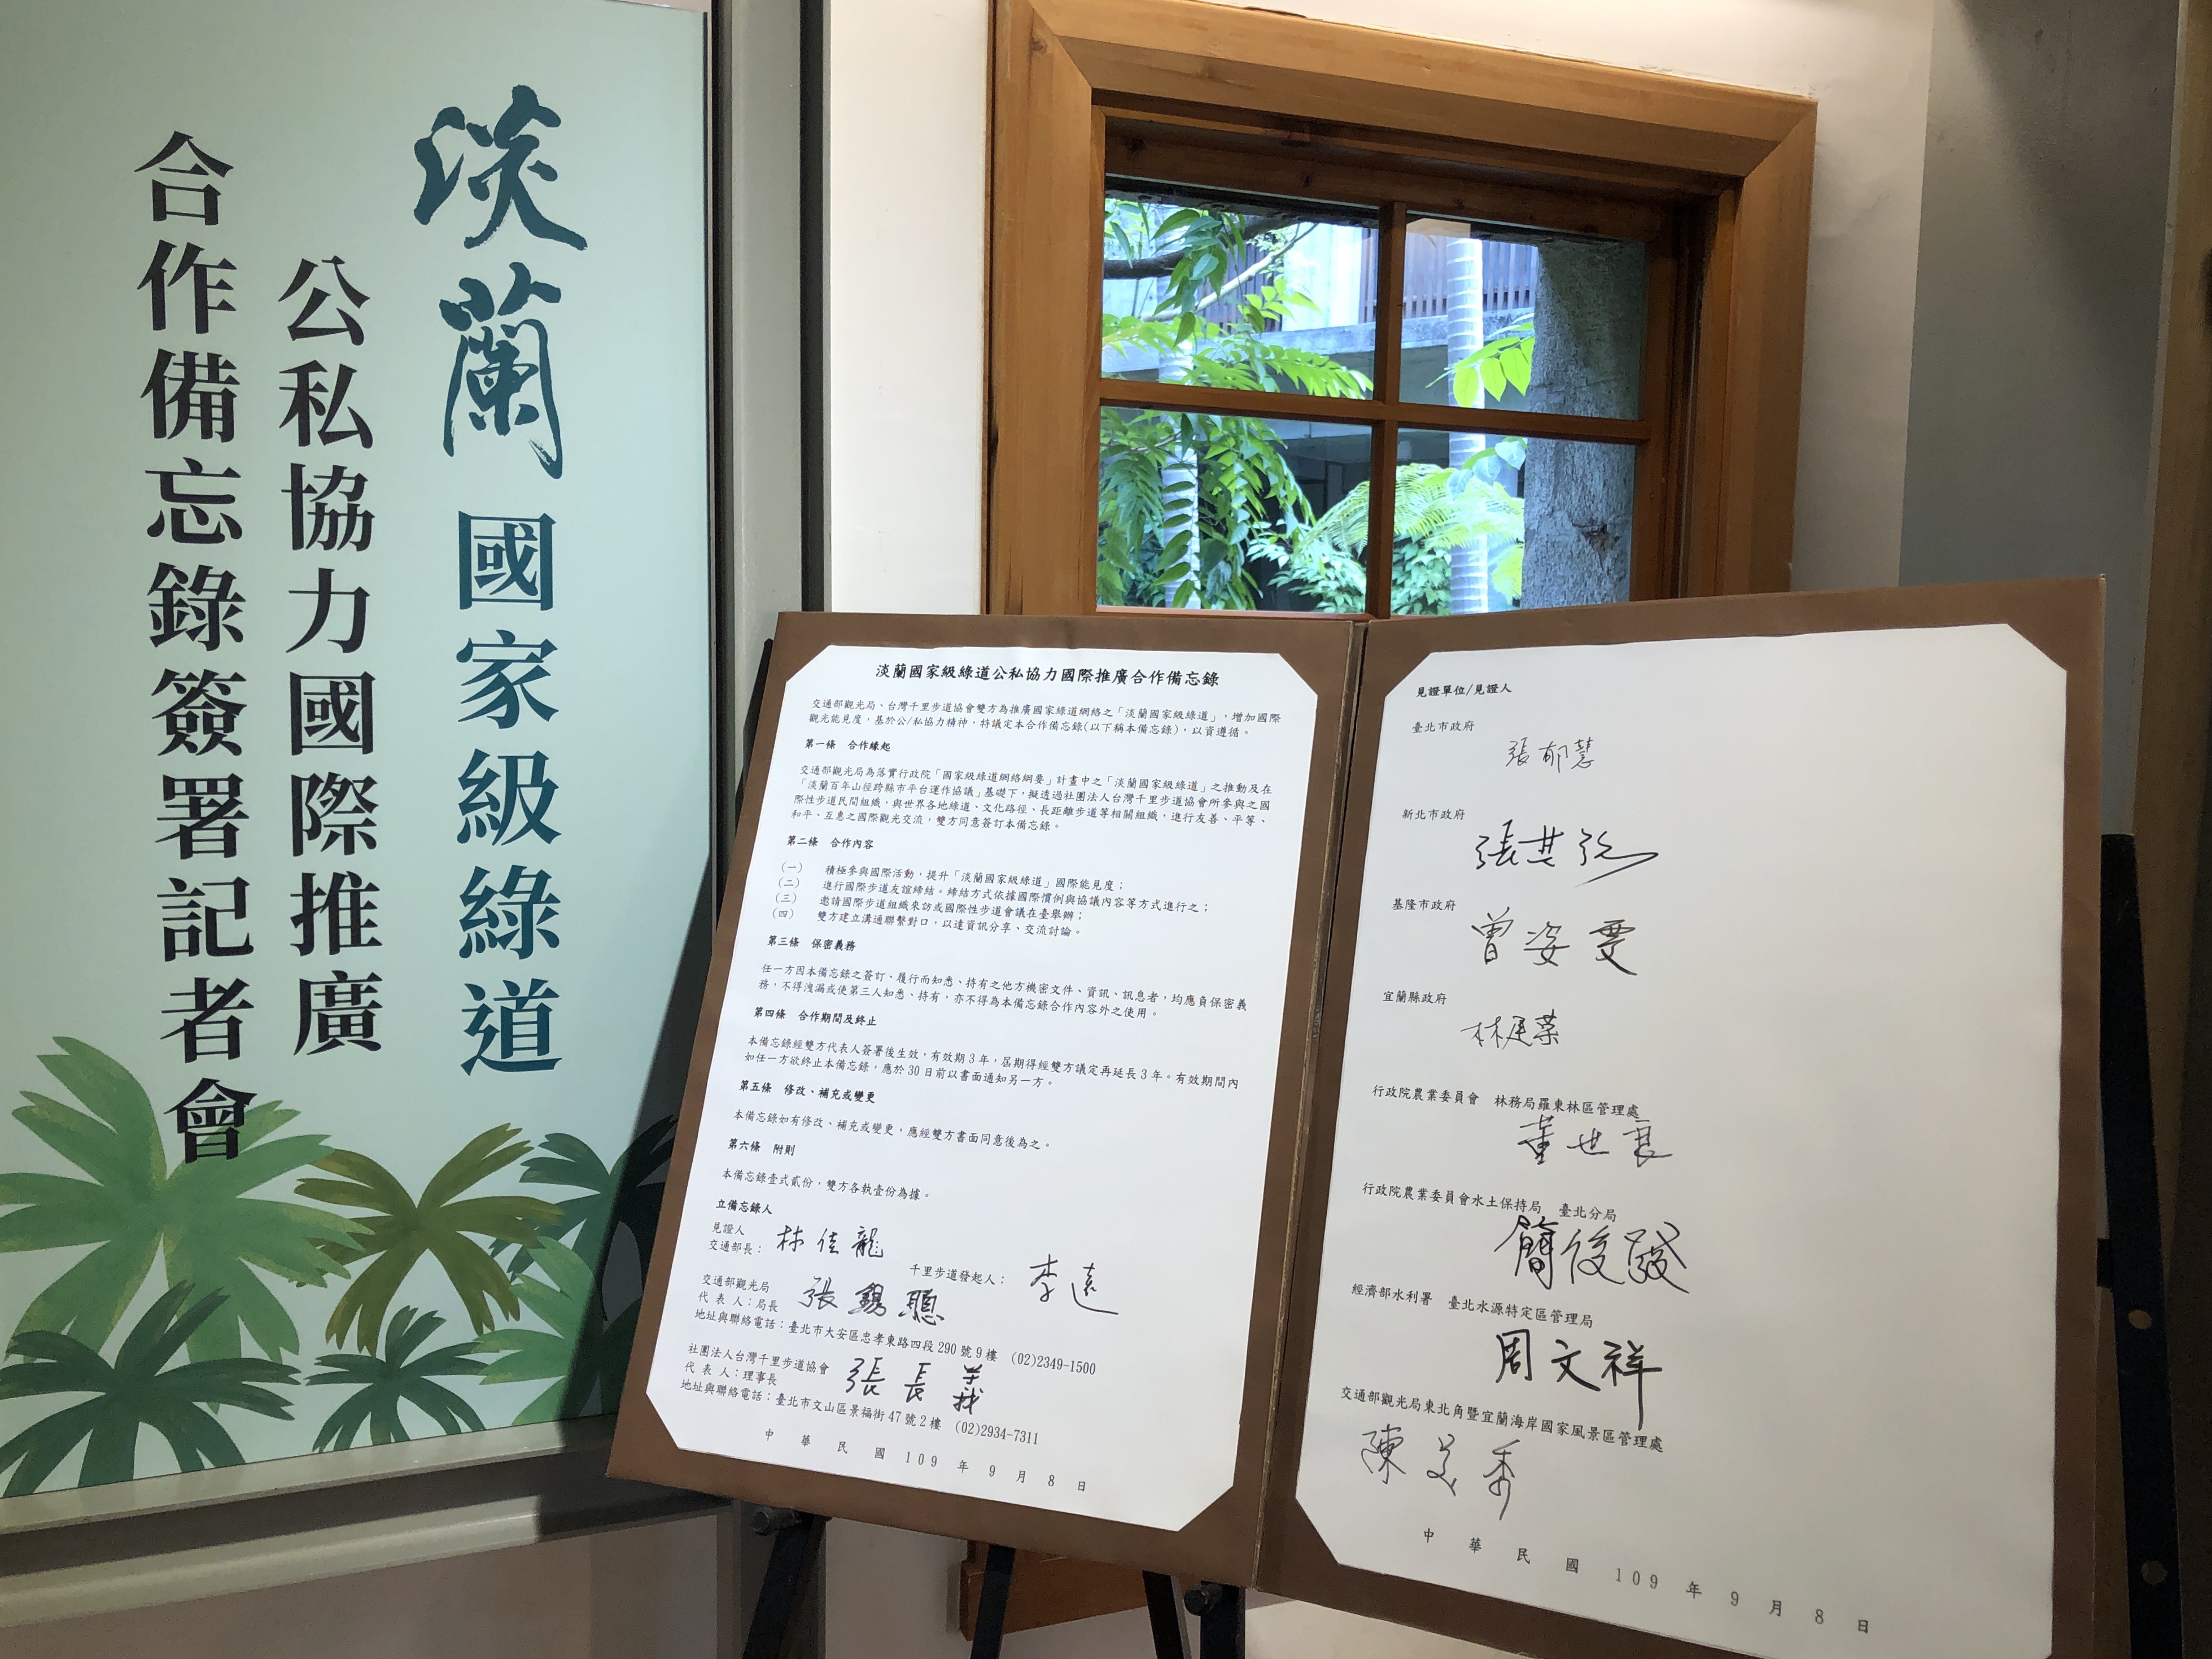 淡蘭國家級綠道
公私協力國際推廣
合作備忘錄簽署記者會
淡蘭國家級綠道公私協力國際推廣合作備忘錄
交通部觀光局、台灣千里步道協會雙方為推廣國家綠道網絡之「淡蘭國家級綠道」，增加國際
觀光能見度，基於公/私協力精神，特議定本合作備忘錄(以下稱本備忘錄)，以資遵循。
第一條 合作緣起
交通部觀光局為落實行政院「國家級綠道網絡綱要」計畫中之「淡蘭國家級綠道」之推動及在
「淡蘭百年山徑跨縣市平台運作協議」基礎下，擬透過社團法人台灣千里步道協會所參與之國
際性步道民間組織，與世界各地綠道、文化路徑、長距離步道等相關組織，進行友善、平等、
和平、互惠之國際觀光交流，雙方同意簽訂本備忘錄。
第二條 合作內容
(一) 積極參與國際活動，提升「淡蘭國家級綠道」國際能見度；
(二) 進行國際步道友誼締結。締結方式依據國際慣例與協議內容等方式進行之；
(三) 邀請國際步道組織來訪或國際性步道會議在臺舉辦；
(四) 雙方建立溝通聯繫對口，以達資訊分享、交流討論。
第三條 保密義務
任一方因本備忘錄之簽訂、履行而知悉、持有之他方機密文件、資訊、訊息者，均應負保密義
務，不得洩漏或使第三人知悉、持有，亦不得為本備忘錄合作內容外之使用。
第四條 合作期間及終止
本備忘錄經雙方代表人簽署後生效，有效期3年，屆期得經雙方議定再延長3年。有效期間內
如任一方欲終止本備忘錄，應於30日前以書面通知另一方。
第五條 修改、補充或變更
本備忘錄如有修改、補充或變更，應經雙方書面同意後為之。
第六條 附則
本備忘錄壹式貳份，雙方各執壹份為據。
立備忘錄人
見證人
交通部長： 林佳龍
千里步道發起人： 李遠
交通部觀光局
代 表 人：局長 張錫聰
地址與聯絡電話：臺北市大安區忠孝東路四段290號9樓 (02)2349-1500
社團法人台灣千里步道協會
代 表 人：理事長 張長義
地址與聯絡電話：臺北市文山區景福街47號2樓 (02)2934-7311
中 華 民 國 109 年 9 月 8 日
見證單位/見證人
臺北市政府
張郁慧
新北市政府
張其強
基隆市政府
曾姿雯
宜蘭縣政府
行政院農業委員會 林務局羅東林區管理處
董世良
行政院農業委員會水土保持局 臺北分局
簡俊發
經濟部水利署 臺北水源特定區管理局
周文祥
交通部觀光局東北角暨宜蘭海岸國家風景區管理處
陳美秀
中 華 民 國 109 年 9 月 8 日